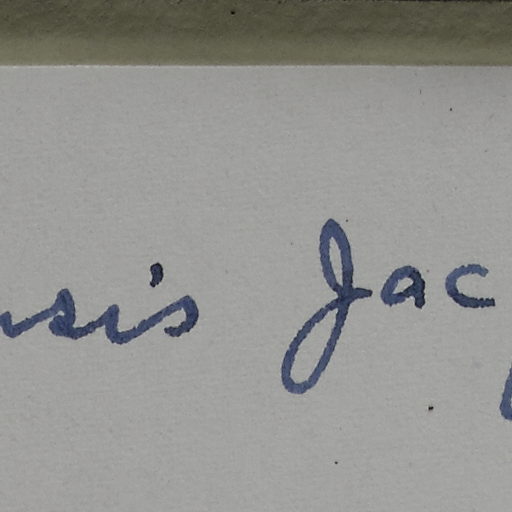 nsis Jac